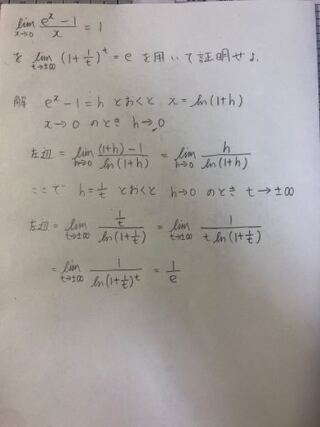 lim_{x→0} (e^x - 1)/x = 1
を lim_{t→±∞} (1+1/t)^t = e を用いて証明せよ.
解 e^x - 1 = h とおくと x = ln(1+h)
x→0 のとき h→0
左辺 = lim_{h→0} ((1+h)-1)/ln(1+h) = lim_{h→0} h/ln(1+h)
ここで h = 1/t とおくと h→0 のとき t→±∞
左辺 = lim_{t→±∞} (1/t)/ln(1+1/t) = lim_{t→±∞} 1/(t ln(1+1/t))
= lim_{t→±∞} 1/ln(1+1/t)^t = 1/e